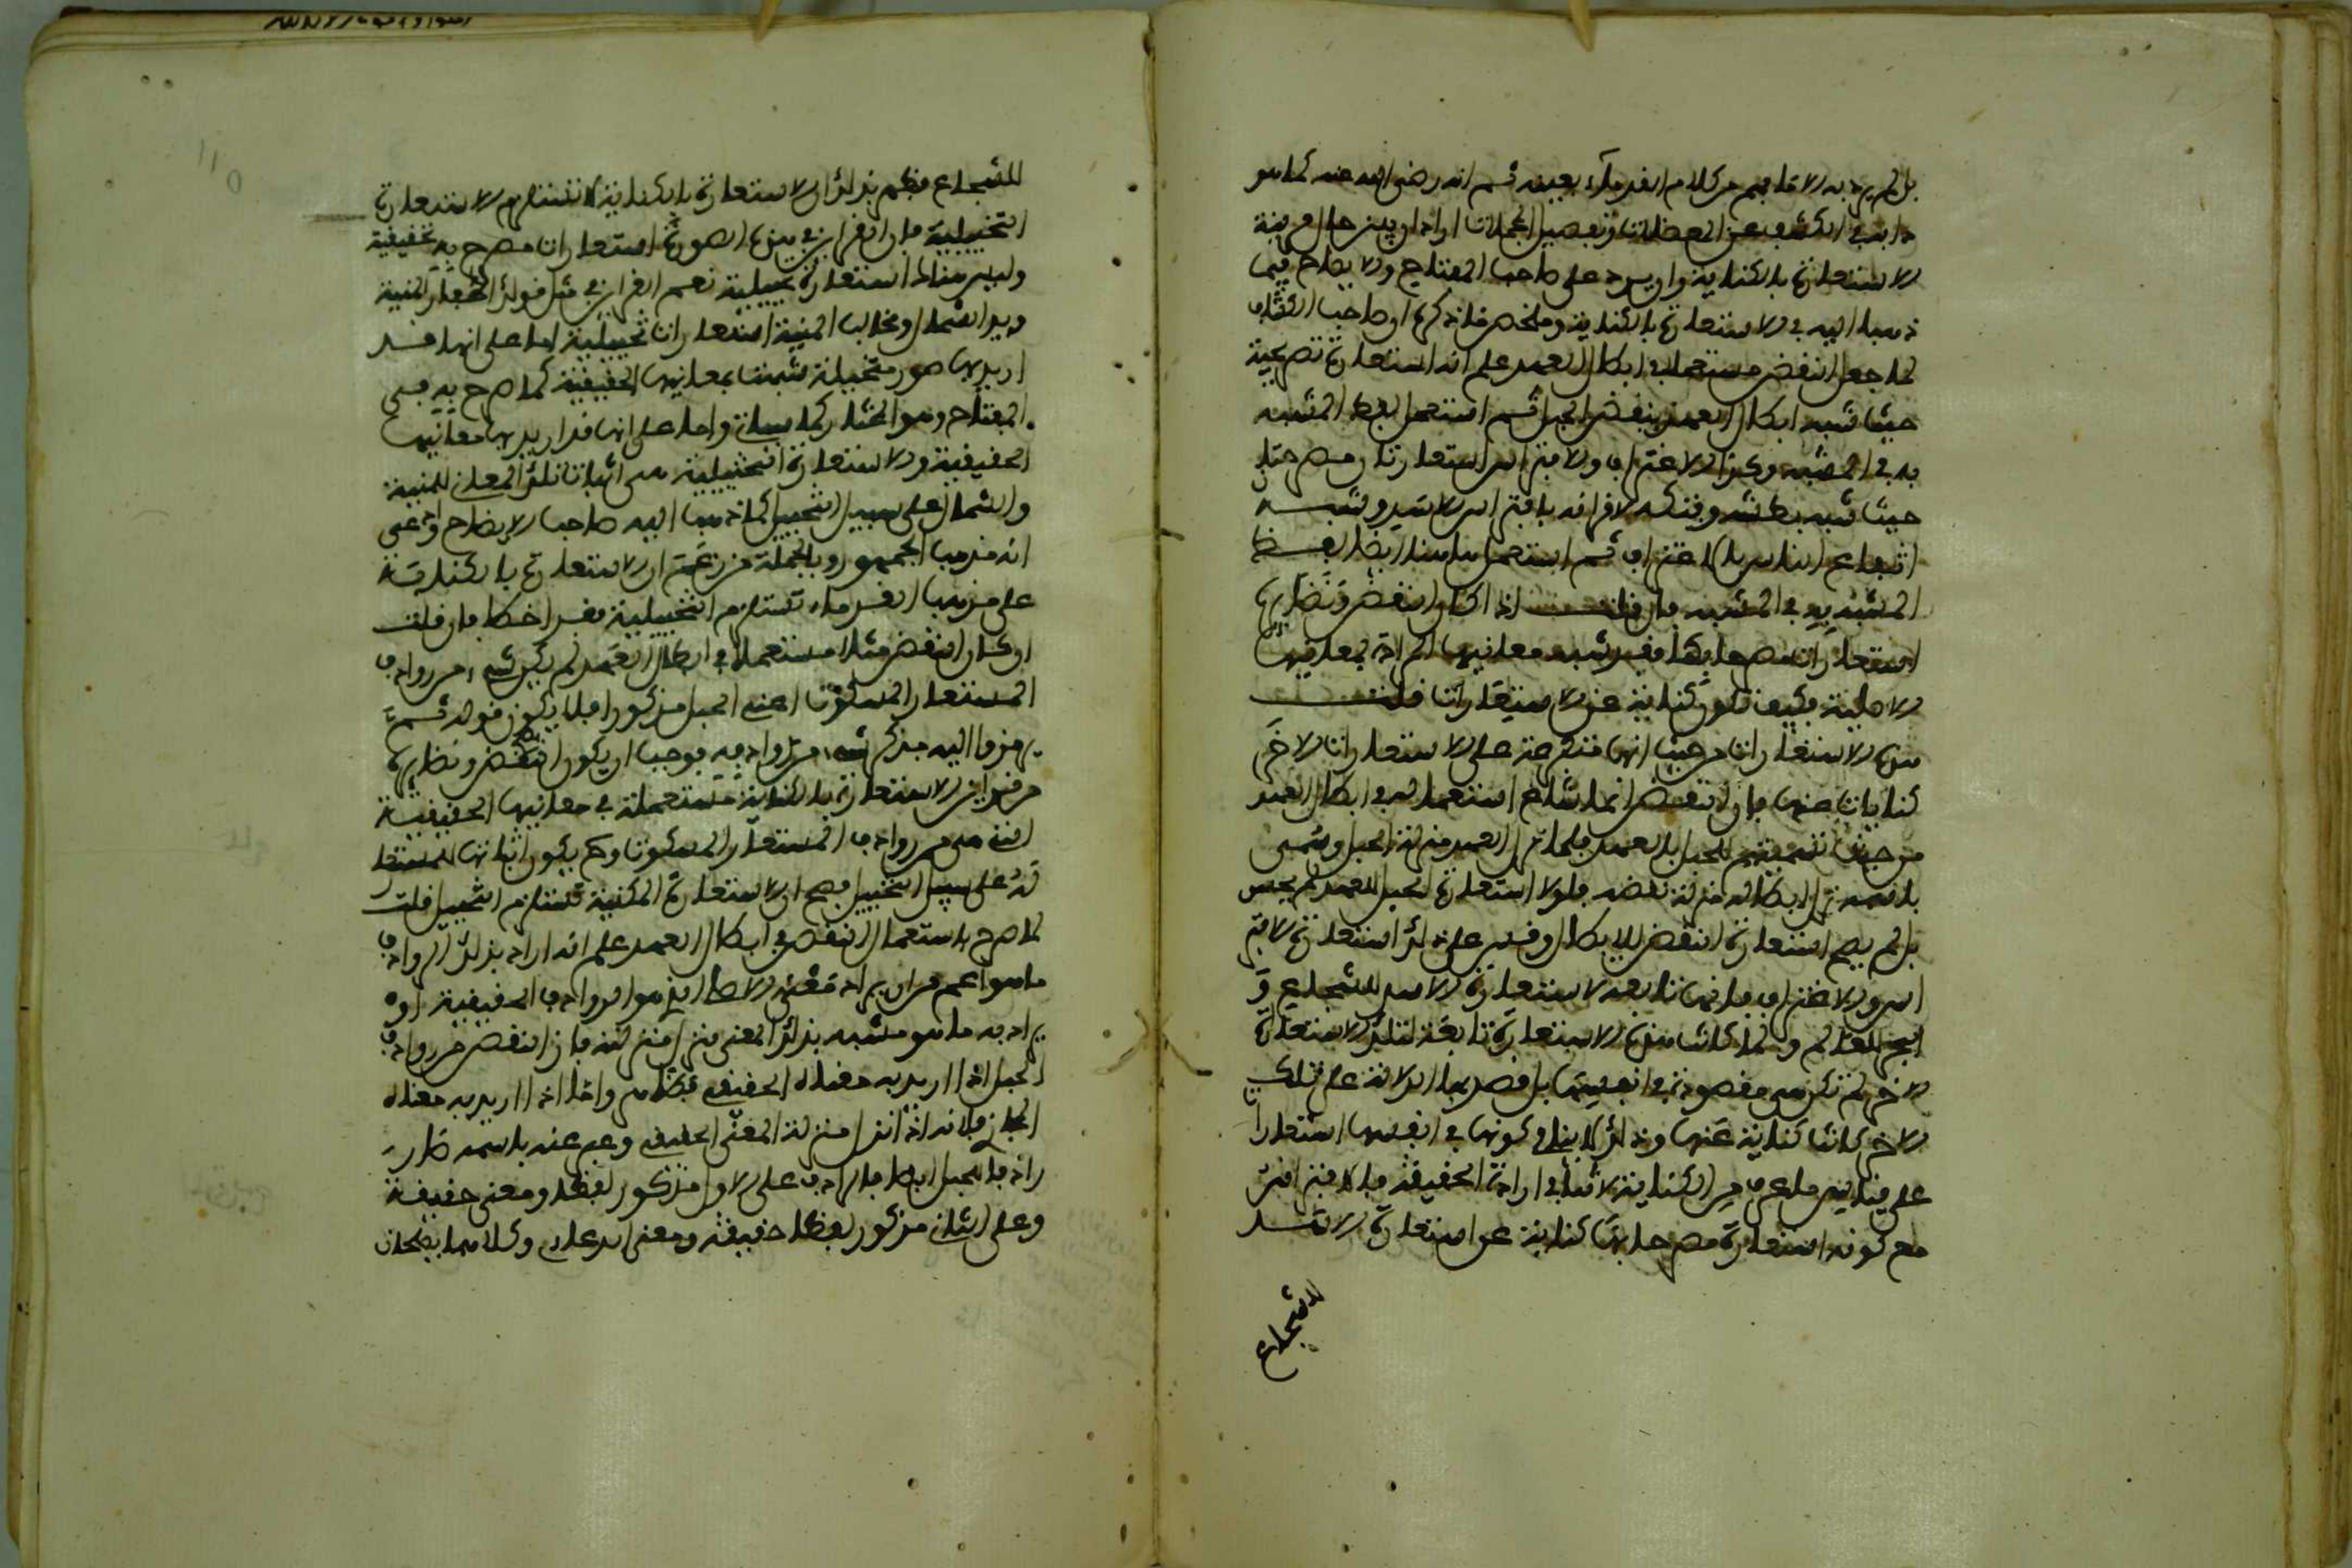 بل لم يرد به الا ما فهم من كلام القدماء بعينه ثم انه رضي الله عنه كما هو
دابه في الكشف عن المعضلات وتفصيل المجملات اراد ان يبين حال قرينة
الاستعارة بالكناية وان يرد على صاحب المفتاح والايضاح فيما
ذهبا اليه في الاستعارة بالكناية وملخص ما ذكره ان صاحب الكشاف
لما جعل النقض مستعملا في ابطال العهد علم انه استعارة تصريحية
حيث شبه ابطال العهد بنقض الحبل ثم استعمل لفظ المشبه
به في المشبه وكذا الاغتراف والافتراس استعارتان مصرحتان
حيث شبه بطشه وفتكه لاقرانه بافتراس الاسد وشبه
انتفاع الناس بالاغتراف ثم استعمل هاهنا ايضا لفظ
المشبه به في المشبه فان قلت اذا كان النقض ونظايره
استعارات مصرحا بها قد شبه معانيها المرادة بمعانيها
الاصلية فكيف تكون كناية عن الاستعارات قلت
هذه الاستعارات من حيث انها متفرعة على الاستعارات الاخر
كنايات عنها فان النقض انما شاع استعماله في ابطال العهد
من حيث تسميتهم الحبل بالعهد فلما نزل العهد منزلة الحبل وسمي
باسمه نزل ابطاله منزلة نقضه فلولا استعارة الحبل للعهد لم يحسن
بل لم يصح استعارة النقض للابطال وقس على ذلك استعارة الافتر
اس والاغتراف فانها تابعة لاستعارة الاسد للشجاع و
البحر للعالم ولما كانت هذه الاستعارة تابعة لتلك الاستعارة
الاخر لم تكن هي مقصودة في انفسها بل قصد بها الدلالة على تلك
الاخر كانت كناية عنها وذلك لا ينافي كونها في انفسها استعارات
على قياس ما عرف من ان الكناية لا تنافي ارادة الحقيقة فالافتراس
مع كونه استعارة مصرحا بها كناية عن استعارة الاسد
للشجاع
للشجاع فظهر بذلك ان الاستعارة بالكناية لا تستلزم الاستعارة
التخييلية فان القراين في هذه الصورة استعارات مصرح بها تحقيقية
وليس هناك استعارة تخييلية نعم القراين في مثل قولك اظفار المنية
ويد الشمال ومخالب المنية استعارات تخييلية اما على انها قد
اريد بها صور متخيلة شبهت بمعانيها الحقيقية كما صرح به في
المفتاح وهو المختار كما سياتي واما على انها قد اريد بها معانيها
الحقيقية والاستعارة التخييلية هي اثبات تلك المعاني للمنية
والشمال على سبيل التخييل كما ذهب اليه صاحب الايضاح وادعى
انه مذهب الجمهور وبالجملة من زعم ان الاستعارة بالكناية
على مذهب القدماء تستلزم التخييلية فقد اخطا فان قلت
ان كان النقض مثلا مستعملا في ابطال العهد لم يكن شيء من روادف
المستعار المسكوت اعني الحبل مذكورا فلا يكون قوله ثم
يرمزوا اليه بذكر شيء من روادفه يوجب ان يكون النقض ونظايره
من قراين الاستعارة بالكناية مستعملة في معانيها الحقيقية
التي هي من روادف المستعار المسكوت وح يكون اثباتها للمستعار
له على سبيل التخييل فصح ان الاستعارة المكنية تستلزم التخييل قلت
لما صرح باستعمال النقض في ابطال العهد علم انه اراد بذلك الروادف
ما هو اعم من ان يراد معناه الاصلي الذي هو الروادف الحقيقية او
يراد به ما هو مشبه بذلك المعنى منزل منزلته فان النقض من روادف
الحبل اذا اريد به معناه الحقيقي فظاهر واما اذا اريد به معناه
المجازي فلانه اذا نزل منزلة المعنى الحقيقي وعبر عنه باسمه صار
رادفا للحبل ايضا فالرادف على الاول مذكور لفظا ومعنى حقيقة
وعلى الثاني مذكور لفظا حقيقة ومعنى ادعاء وكلاهما يصلحان